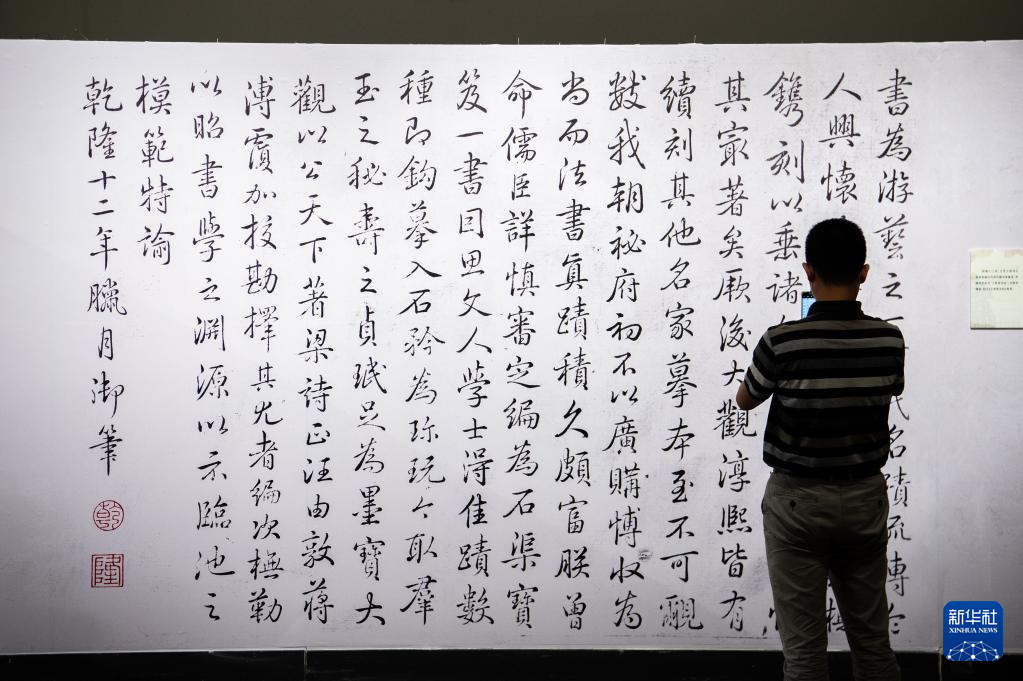 書為游藝之一代名蹟流傳令
人興懷
鐫刻以垂諸
其冣著矣厥後大觀淳熙皆有
續刻其他名家摹本至不可覼
數我朝秘府初不以廣購博收為
尚而法書真蹟積久頗富朕曾
命儒臣詳慎審定編為石渠寶
笈一書因思文人學士得佳蹟數
種即鈎摹入石矜為珍玩今取羣
玉之秘壽之貞珉足為墨寶大
觀以公天下著梁詩正汪由敦蔣
溥覆加挍勘擇其尤者編次橅勒
以昭書學之淵源以示臨池之
模範特諭
乾隆十二年臘月御筆
乾
隆
新华社
XINHUA NEWS